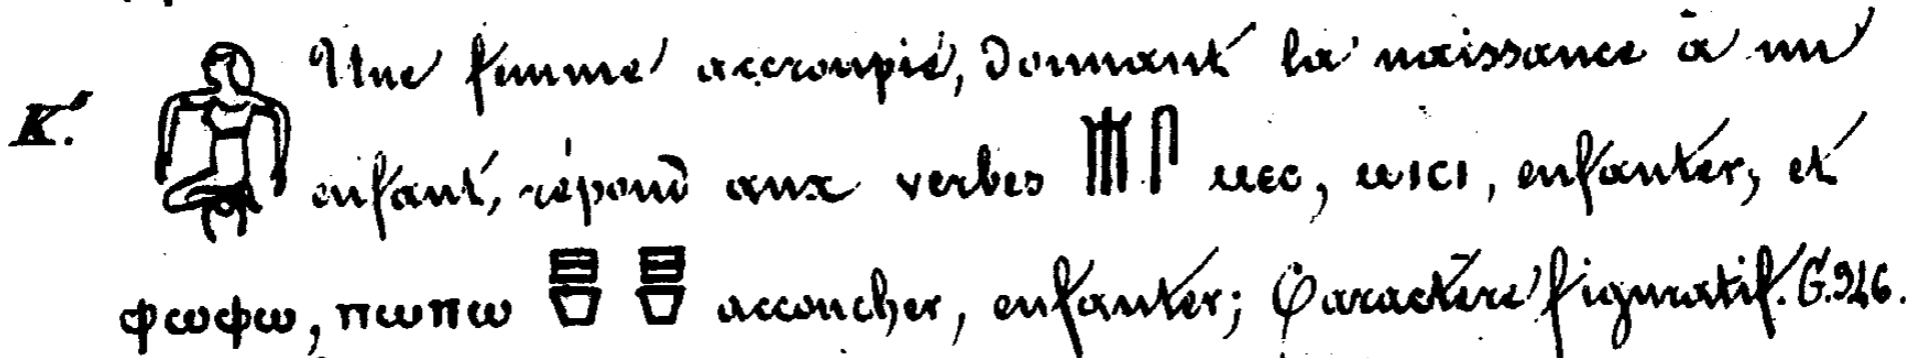 K. 𓁒 Une femme accroupie, donnant la naissance à un
enfant, répond aux verbes 𓄟𓋴 ⲙⲉⲥ, ⲙⲓⲥⲓ, enfanter, et
ⲫⲱⲫⲱ, ⲡⲱⲡⲱ accoucher, enfanter; Caractère figuratif. G.